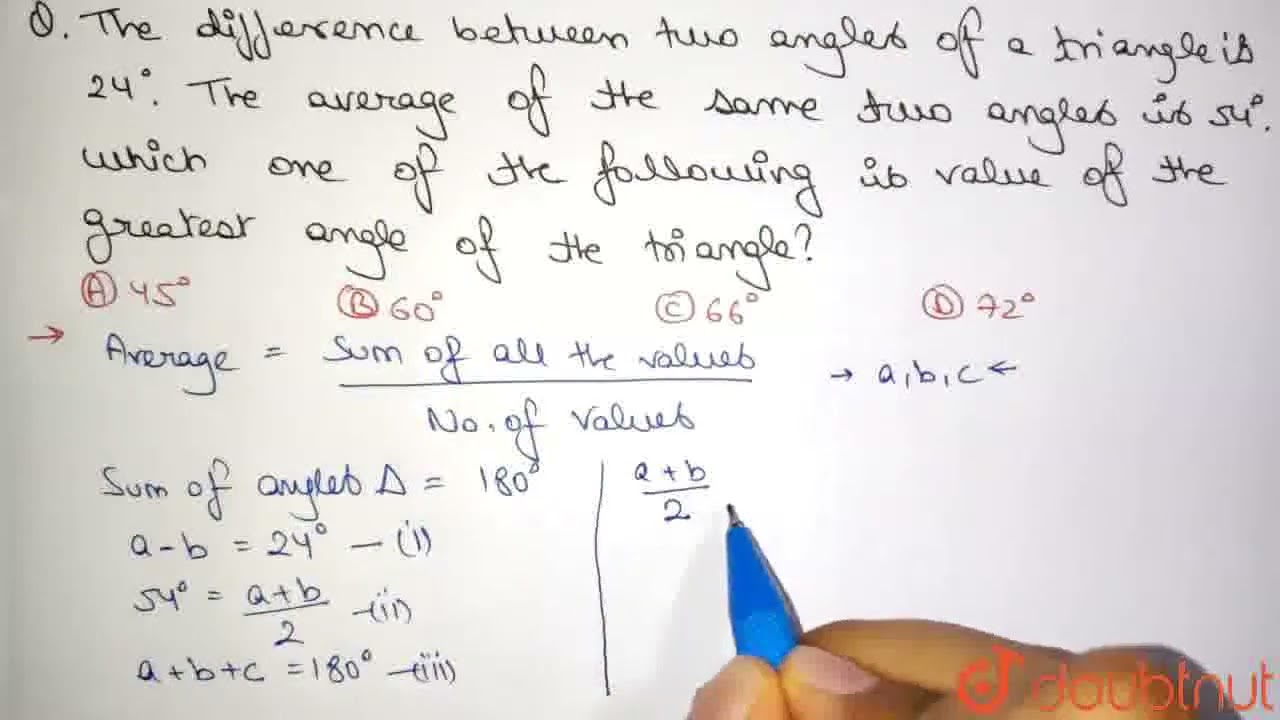 Q. The difference between two angles of a triangle is
24°. The average of the same two angles is 54°.
which one of the following is value of the
greatest angle of the triangle?
(A) 45° (B) 60° (C) 66° (D) 72°
→ Average = Sum of all the values / No. of values → a, b, c ←
Sum of angles Δ = 180°
a - b = 24° — (i)
54° = a + b / 2 - (ii)
a + b + c = 180° - (iii)
a + b / 2
doubtnut